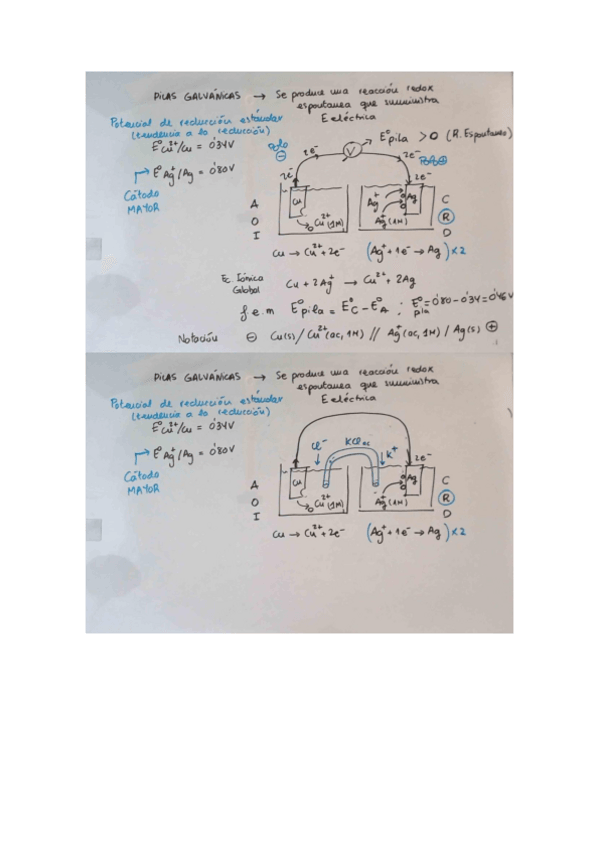 PILAS GALVÁNICAS → Se produce una reacción redox
espontanea que suministra
E eléctrica
Potencial de reducción estándar
(tendencia a la reducción)
E° Cu²⁺/Cu = 0'34V
E° Ag⁺/Ag = 0'80V
Cátodo
MAYOR
Polo ⊖
2e⁻
V
E°pila > 0 (R. Espontanea)
2e⁻
Polo ⊕
2e⁻
2e⁻
A
O
I
Cu
Cu²⁺(1M)
Ag⁺
Ag
Ag⁺(1M)
C
R
D
Cu → Cu²⁺ + 2e⁻
(Ag⁺ + 1e⁻ → Ag) x2
Ec. Iónica
Global
Cu + 2Ag⁺ → Cu²⁺ + 2Ag
f.e.m E°pila = E°C - E°A ; E°pila = 0'80 - 0'34 = 0'46V
Notación ⊖ Cu(s) / Cu²⁺(ac, 1M) // Ag⁺(ac, 1M) / Ag(s) ⊕
PILAS GALVÁNICAS → Se produce una reacción redox
espontanea que suministra
E eléctrica
Potencial de reducción estándar
(tendencia a la reducción)
E° Cu²⁺/Cu = 0'34V
E° Ag⁺/Ag = 0'80V
Cátodo
MAYOR
Cl⁻
KCl ac
K⁺
2e⁻
A
O
I
Cu
Cu²⁺(1M)
Ag
Ag⁺(1M)
C
R
D
Cu → Cu²⁺ + 2e⁻
(Ag⁺ + 1e⁻ → Ag) x2